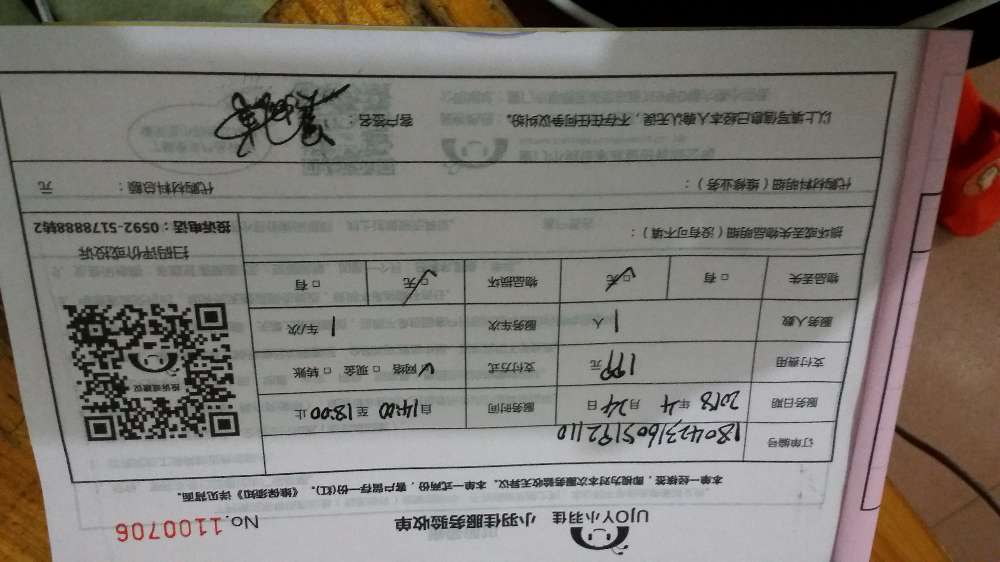 UJOY小羽佳 小羽佳服务验收单 No.1100706
本单一经核签，即视为对本次服务验收无异议。本单一式两份，客户留存一份(红)。《维保须知》详见背面。
订单编号 1804231605192110
服务日期 2018 年 4 月 24 日 服务时间 自 14:00 至 18:00 止
支付费用 199 元 支付方式 ☑网络 □现金 □转账
服务人数 1 人 服务车次 1 车/次
物品丢失 □有 ☑无 物品损坏 ☑无 □有
投诉或建议
扫码评价或投诉
投诉电话：0592-5178888转2
损坏或丢失物品明细（没有可不填）：
代购材料明细（维修业务）： 代购材料总额： 元
以上填写信息已经本人确认无误，不存在任何争议纠纷。 客户签名：